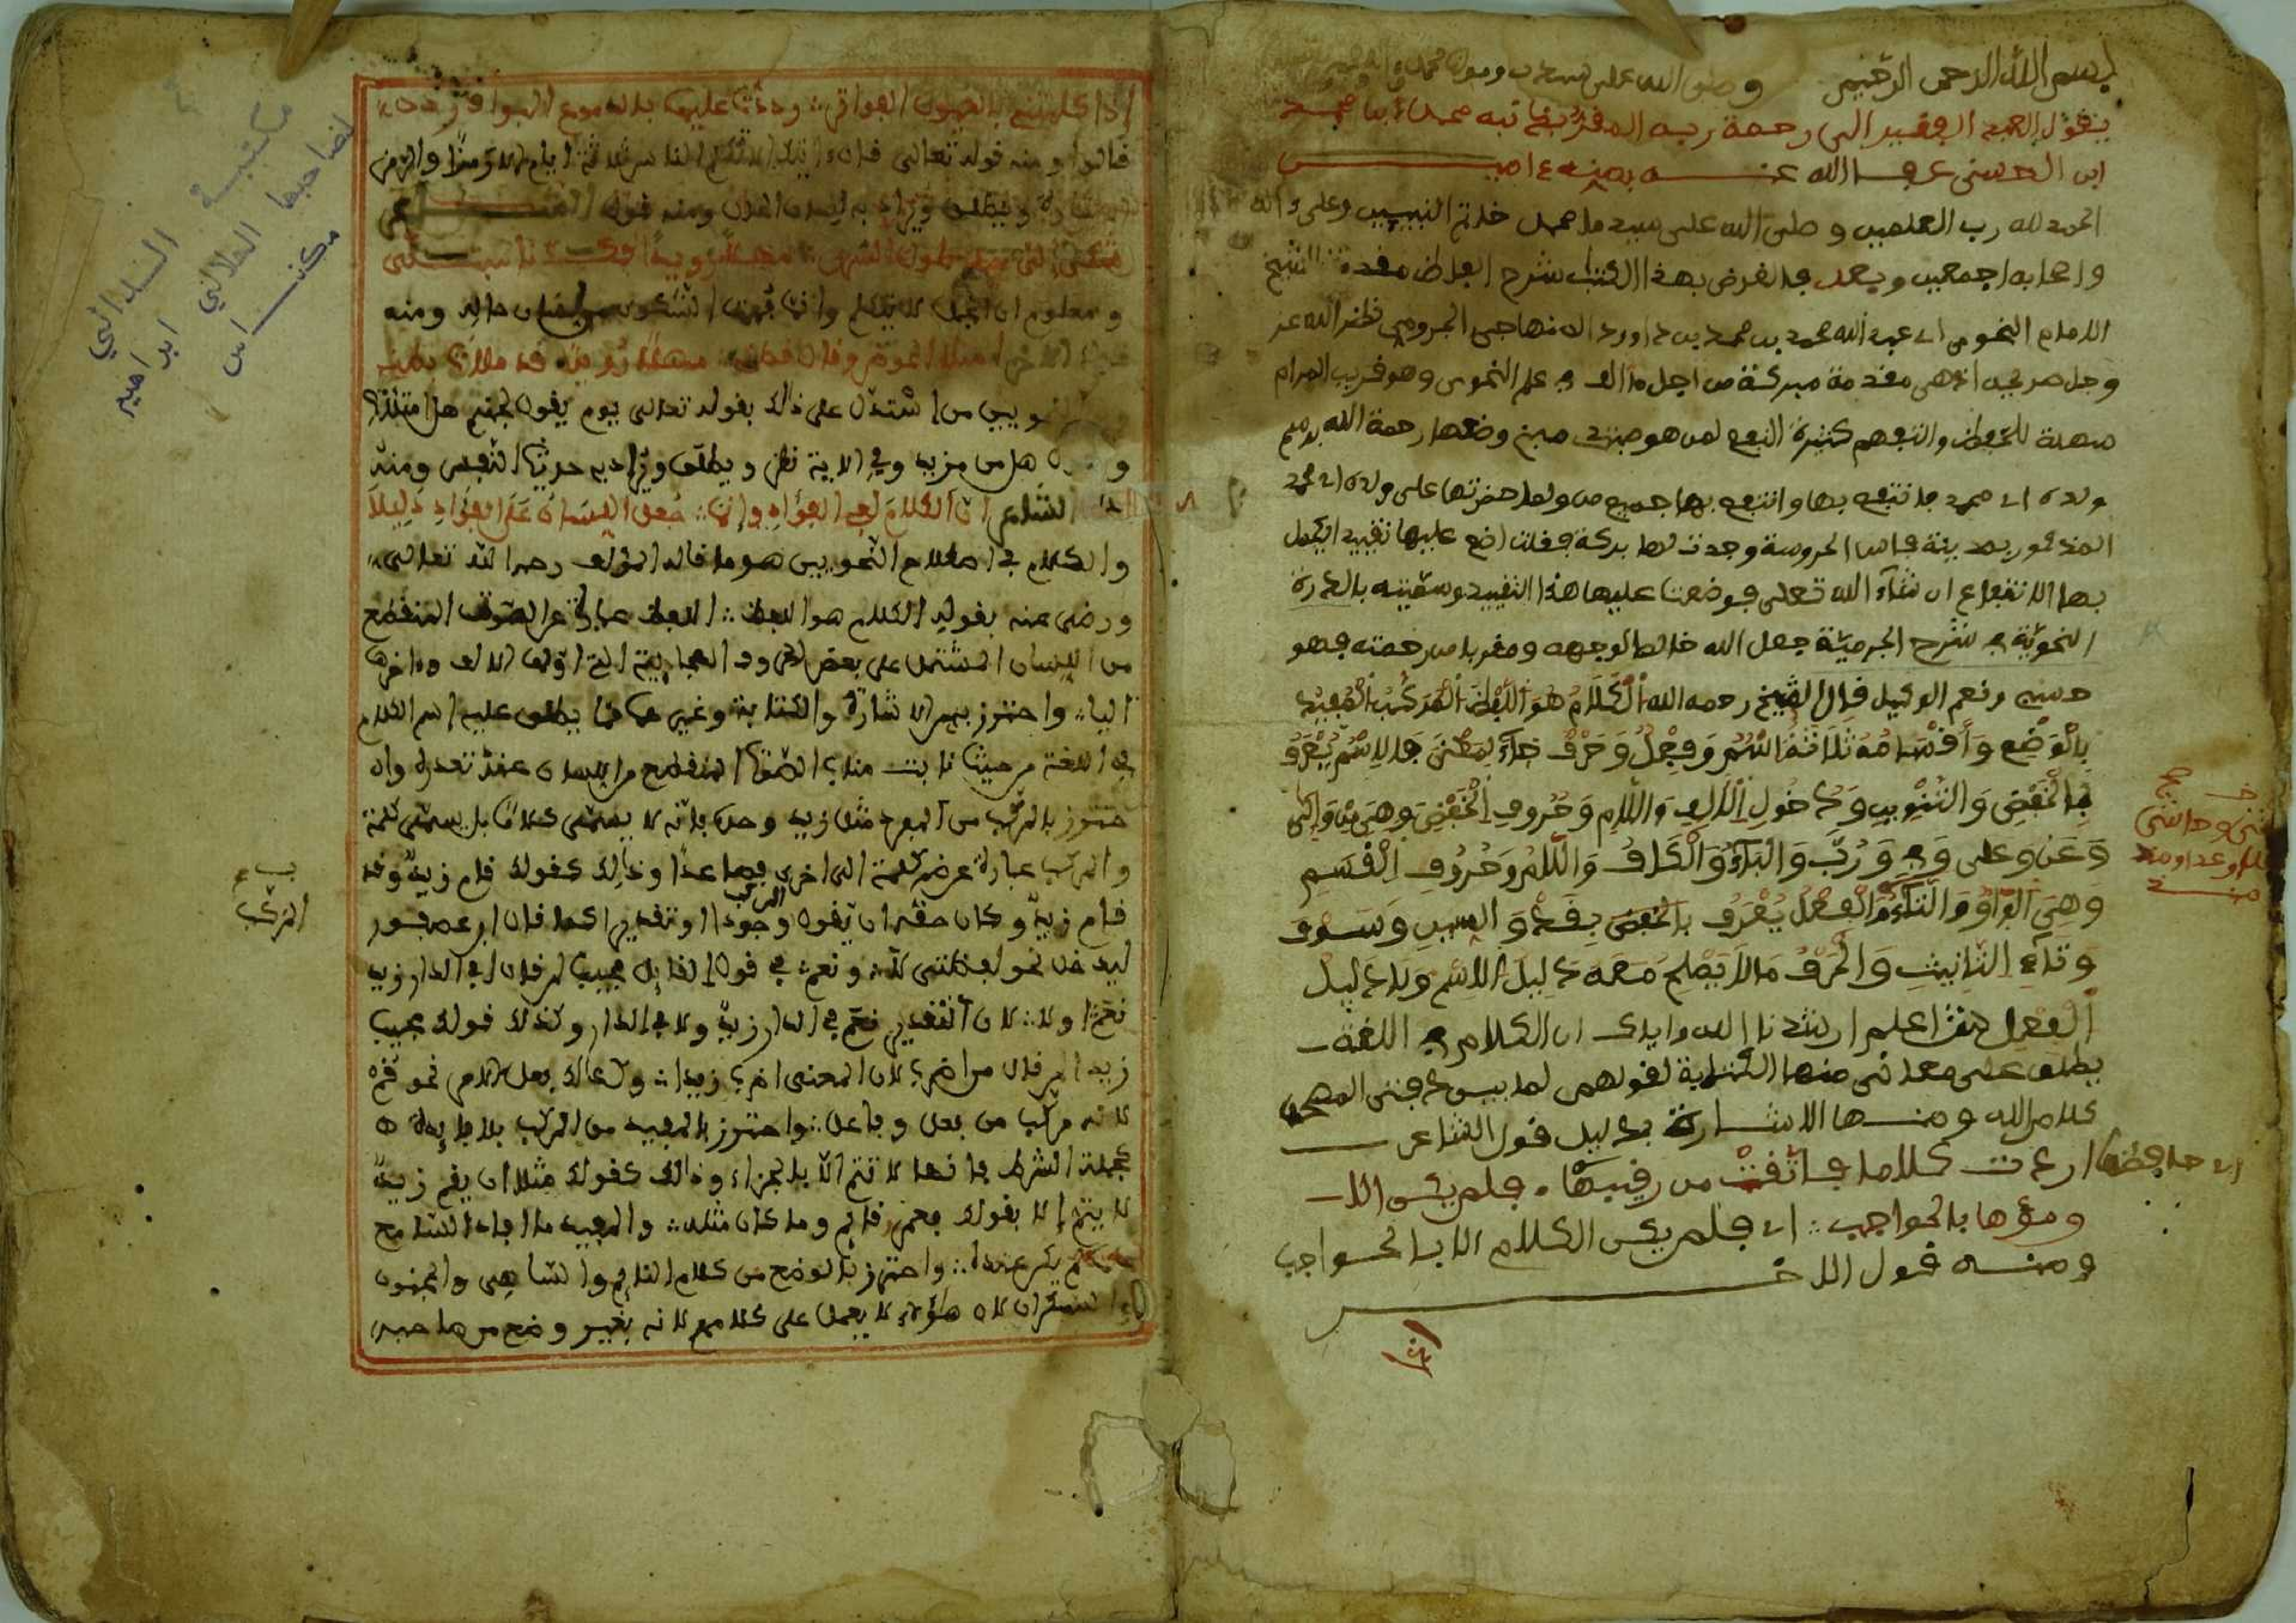 بسم الله الرحمن الرحيم وصلى الله على سيدنا ومولانا محمد
يقول العبد الفقير الى رحمة ربه المقر بخاتبه محمد بن احمد
ابن الحسنى عفا الله عنه بمنه ءامين
الحمد لله رب العلمين وصلى الله على سيدنا محمد خاتم النبيين وعلى ءاله
واصحابه اجمعين وبعد فالغرض بهذا الكتاب شرح الفاظ مقدمة الشيخ
الامام النحوى ابى عبد الله محمد بن محمد بن داوود الصنهاجى الجرومى نظر الله عز
وجل صريحه اذ هى مقدمة مبركة من اجل ما الف في علم النحوى وهو قريب المرام
سهلة للحفظ والتفهم كثيرة النفع لمن هو مبتدى صبى وضعها رحمة الله برسم
ولده ابى محمد فانتفع بها وانتفع بها جميع من ولما حضرتها على ولده ابى محمد
المذكور بمدينة فاس المحروسة وجدت لها بركة فقلت اضع عليها تقييد ايكمل
بها الانتفاع ان شاء الله تعلى فوضعنا عليها هذا التقييد وسميته بالدرة
النحوية في شرح الجرمية جعل الله خالصا لوجهه ومقربا من رحمته فهو
حسبى ونعم الوكيل قال الشيخ رحمه الله الْكَلَامُ هُوَ اللَّفْظُ الْمُرَكَّبُ الْمُفِيدُ
بِالْوَضْعِ وَأَقْسَامُهُ ثَلَاثَةٌ اسْمٌ وَفِعْلٌ وَحَرْفٌ جَاءَ لِمَعْنًى فَالِاسْمُ يُعْرَفُ
بِالْخَفْضِ وَالتَّنْوِينِ وَدُخُولِ الْأَلِفِ وَاللَّامِ وَحُرُوفِ الْخَفْضِ وَهِيَ مِنْ وَإِلَى
وَعَنْ وعلى وَفِي وَرُبَّ وَالْبَاءُ وَالْكَافُ وَاللَّامُ وَحُرُوفِ الْقَسَمِ
وَهِيَ الْوَاوُ وَالْبَاءُ وَالتَّاءُ وَالْفِعْلُ يُعْرَفُ بِقَدْ وَالسِّينِ وَسَوْفَ
وَتَاءِ التَّانِيثِ وَالْحَرْفُ مَا لَا يَصْلُحُ مَعَهُ دَلِيلُ الِاسْمِ وَلَا دَلِيلُ
الْفِعْلِ اعلم ارشدنا الله واياك ان الكلام في اللغة
يطلق على معان منها الكتابة لقولهم لما بين دفتى المصحف
كلام الله ومنها الاشارة بدليل قول الشاعر
ارادت كلاما فاتقت من رقيبها فلم يكن الا
ومؤها بالحواجب اى فلم يكن الكلام الا بالحواجب
ومنه قول الاخر
إذا كلمتنى بالعيون الفواتر رددت عليها بالدموع البوادر
قالوا ومنه قوله تعالى قال ءايتك الا تكلم الناس ثلاثة ايام الا رمزا والرمز
الاشارة ويطلق ويراد به لسان الحال ومنه قول
شكى الى جملى طول السرى مهلا رويدا فكلانا مبتلى
ومعلوم ان الجمل لا يتكلم وانما فهمت الشكوى من لسان حاله ومنه
قول الاخر امتلأ الحوض وقال قطنى مهلا رويدا قد ملأت بطنى
ومن النحويين من استدل على ذالك بقوله تعالى يوم يقول لجهنم هل امتلأت
وتقول هل من مزيد وفي الاية نظر ويطلق ويراد به حديث النفس ومنه
قول الشاعر ان الكلام لفي الفؤاد وإنما جعل اللسان على الفؤاد دليلا
والكلام في اصطلاح النحويين هو ما قاله المؤلف رحمه الله تعالى
ورضى عنه بقوله الكلام هو اللفظ اللفظ عبارة عن الصوت المنقطع
من اللسان المشتمل على بعض الحروف الهجايية التى اولها الالف وءاخرها
اليا واحترز به من الاشارة والكتابة وغيرهما مما يطلق عليه اسم الكلام
في اللغة من حيث نابت مناب الصوت المنقطع من اللسان عند تعذره وان
احترز بالمركب من المفرد مثل زيد وحده فانه لا يسمى كلاما بل يسمى كلمة
والمركب عبارة عن ضم كلمة الى اخرى فصاعدا وذلك كقولك قام زيد وقد
قام زيد وكان حقه ان يقول وجودا او تقديرا كما قال ابن عصفور
ليدخل نحو لفظتى لا ونعم في قول القايل مجيبا لمن قال افي الدار زيد
نعم او لا لان التقدير نعم في الدار زيد ولا في الدار وكذلك قولك مجيب
زيدا لمن قال من اضرب لان المعنى اضرب زيدا وكذالك فعل الامر نحو قم
لانه مركب من فعل وفاعل واحترز بالمفيد من المركب بلا فايدة
كجملة الشرط فانها لا تتم الا بالجزاء وذالك كقولك مثلا ان يقم زيد
لا يتم إلا بقولك فعمر قايم وما كان مثله والمفيد ما افاد السامع
علما لم يكن عنده واحترز بالوضع من كلام النايم والساهى والمجنون
والسكران لان هؤلاء لا يعمل على كلامهم لانه بغير وضع من صاحبه
مكتبة السلاالي
لصاحبها العلالي ابراهيم
مكناس
المركب